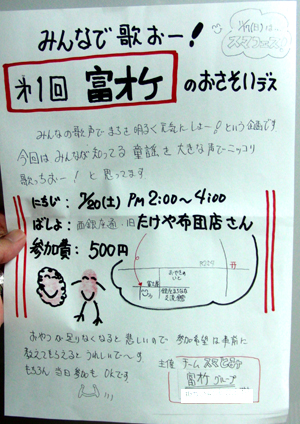 みんなで歌おー!
才1回 富オケ のおさそいデス
みんなの歌声でまちを明るく元気にしよー!という企画です
今回はみんなが知ってる童謡を大きな声でニッコリ
歌っちおー!と思ってます
にちじ: 7/20(土) PM 2:00〜4:00
ばしょ: 西銀座通・旧 たけや布団店さん
参加費: 500円
おやつが足りなくなると悲しいので 参加希望は事前に
教えてもらえるとうれしいで〜す
もちろん 当日参加も OKです
主催 チーム
富オケ グループ